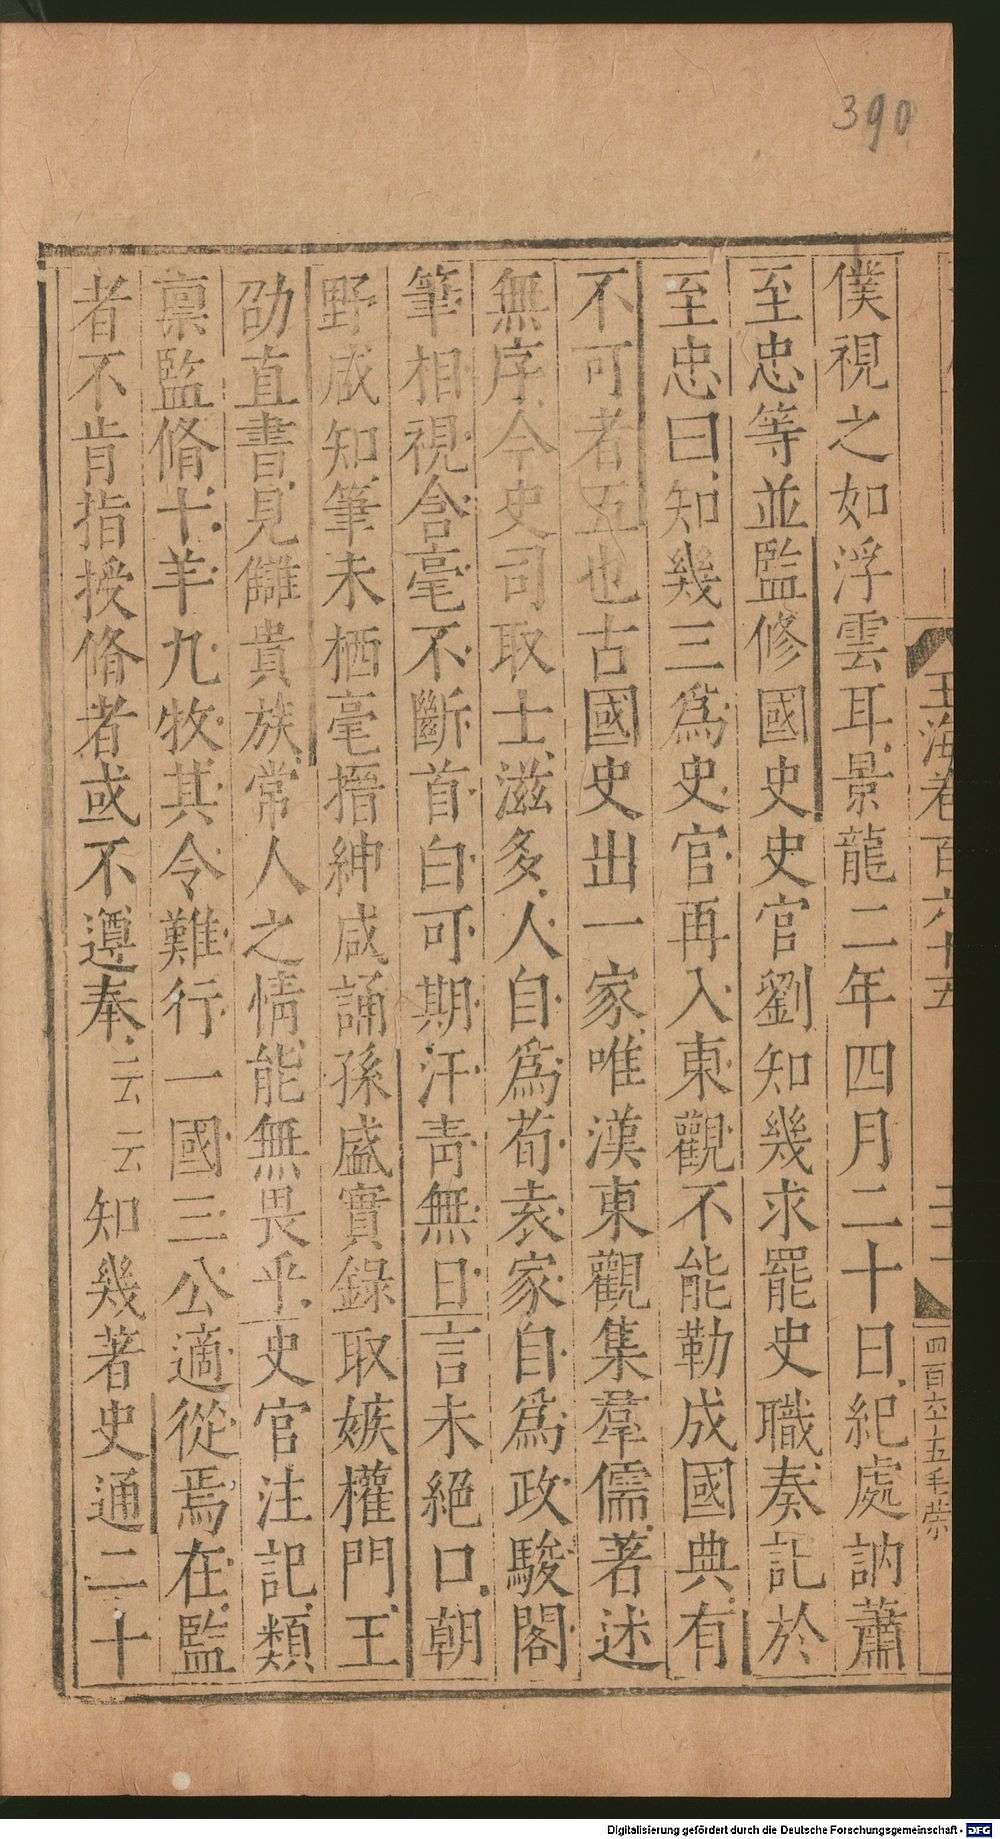 390
玉海卷百六十五
四百六十五毛
僕視之如浮雲耳景龍二年四月二十日紀處訥蕭
至忠等並監修國史史官劉知幾求罷史職奏記於
至忠曰知幾三爲史官再入東觀不能勒成國典有
不可者五也古國史出一家唯漢東觀集羣儒著述
無序今史司取士滋多人自爲荀袁家自爲政駿閣
筆相視含毫不斷首白可期汗青無日言未絕口朝
野咸知筆未栖毫搢紳咸誦孫盛實錄取嫉權門王
劭直書見讎貴族常人之情能無畏乎史官注記類
禀監脩十羊九牧其令難行一國三公適從焉在監
者不肯指授脩者或不遵奉云云知幾著史通二十
Digitalisierung gefördert durch die Deutsche Forschungsgemeinschaft - DFG